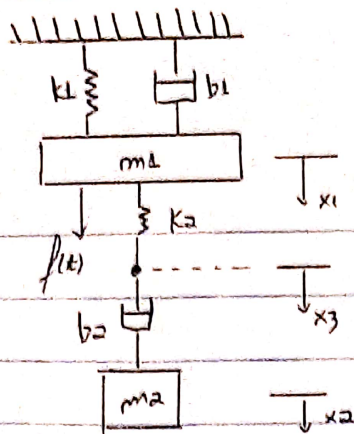 k1
b1
m1
x1
k2
f(t)
x3
b2
m2
x2